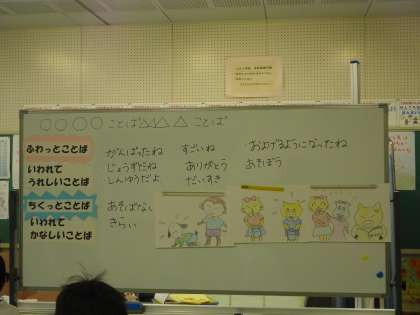 ○○○○ことば△△△ことば
ふわっとことば
いわれて
うれしいことば
がんばったね
じょうずだね
しんゆうだよ
すごいね
ありがとう
だいすき
・およげるようになったね
あそぼう
ちくっとことば
いわれて
かなしいことば
あそばない
きらい